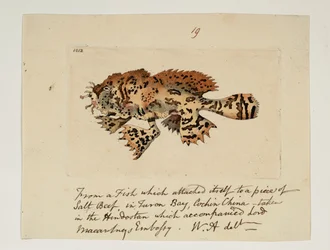 19
1812
From a Fish which attached itself to a piece of
Salt Beef in Turon Bay, Cochin China - taken
in the Hindostan which accompanied Lord
Macartneys Embassy. W. A delt